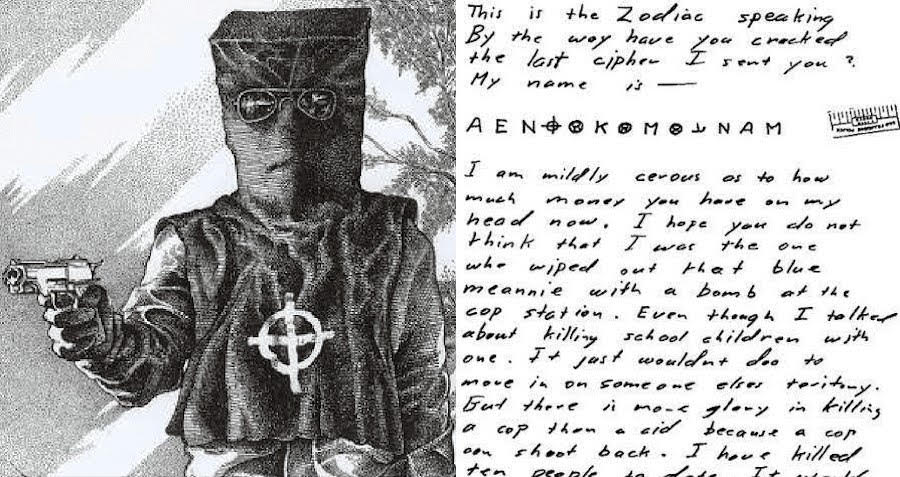 This is the Zodiac speaking
By the way have you cracked
the last cipher I sent you ?
My name is —
A E N ⌖ ⊗ K ⊗ M ⊗ N A M
I am mildly cerous as to how
much money you have on my
head now. I hope you do not
think that I was the one
who wiped out that blue
meannie with a bomb at the
cop station. Even though I talked
about killing school children with
one. It just wouldnt doo to
move in on someone elses teritory.
But there is more glory in killing
a cop than a cid because a cop
can shoot back. I have killed
ten people to date. It would